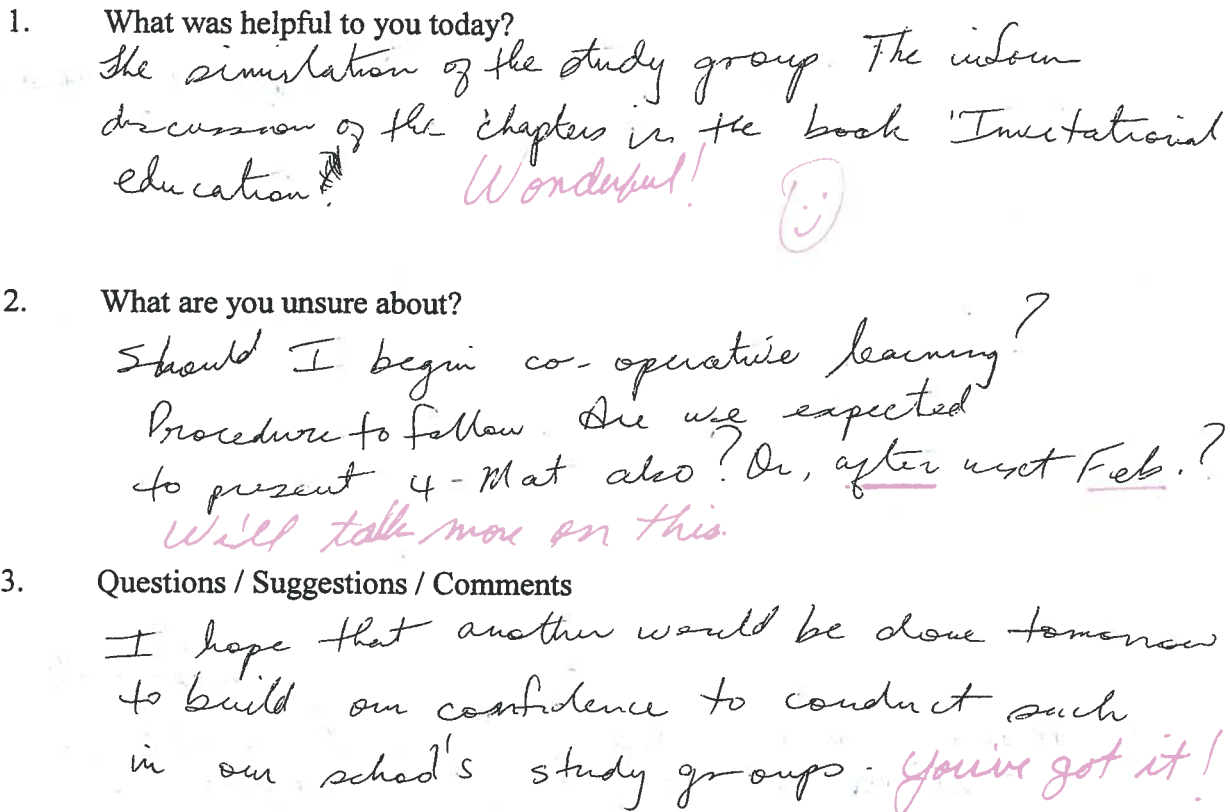 1. What was helpful to you today?
The simulation of the study group. The inform
discussion of the chapters in the book 'Invitational
education'.
Wonderful!
2. What are you unsure about?
Should I begin co-operative learning?
Procedure to follow. Are we expected
to present 4-Mat also? Or, after next Feb.?
Will talk more on this.
3. Questions / Suggestions / Comments
I hope that another would be done tomorrow
to build our confidence to conduct such
in our school's study groups. You've got it!